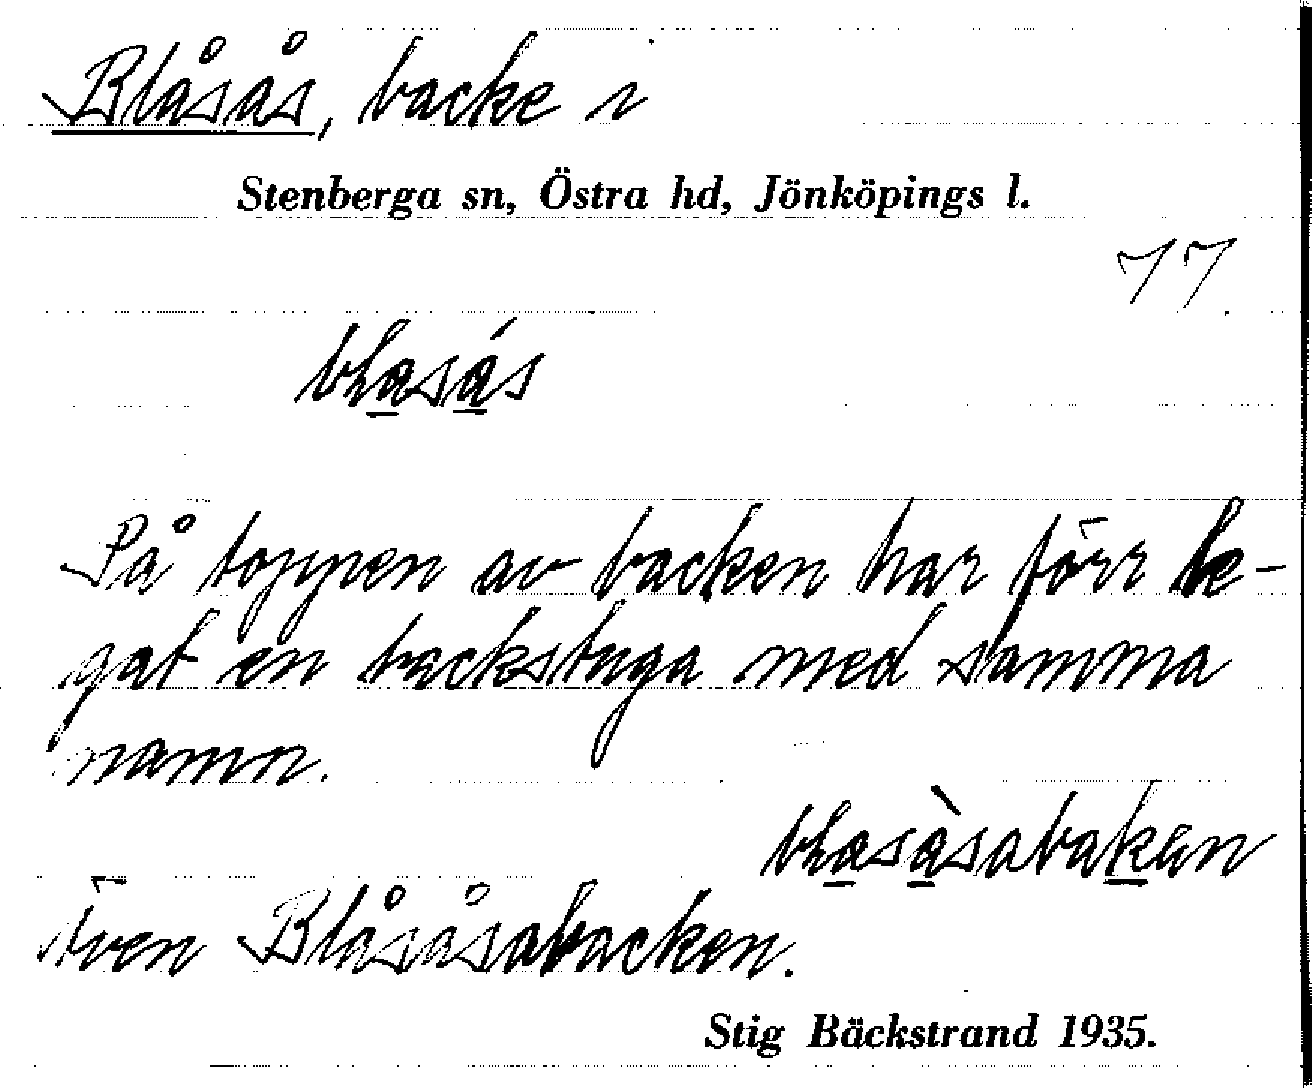 Blåsås, backe i
Stenberga sn, Östra hd, Jönköpings l.
77.
blasás
På toppen av backen har förr le-
gat en backstuga med samma
namn.
blasàsabakan
Även Blåsåsabacken.
Stig Bäckstrand 1935.